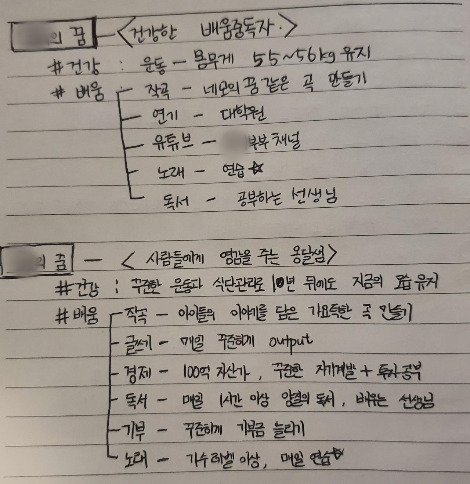 의 꿈 — <건강한 배움중독자:>
#건강 : 운동 - 몸무게 55~56kg 유지
#배움 작곡 - 네모의 꿈 같은 곡 만들기
연기 - 대학원
유튜브 - 부부 채널
노래 - 연습☆
독서 - 공부하는 선생님
의 꿈 — <사람들에게 영감을 주는 옹달샘>
#건강 : 꾸준한 운동과 식단관리로 10년 뒤에도 지금의 모습 유지
#배움 작곡 - 아이들의 이야기를 담은 가요틱한 곡 만들기
글쓰기 - 매일 꾸준하게 output
경제 - 100억 자산가, 꾸준한 자기계발 + 투자공부
독서 - 매일 1시간 이상 양질의 독서, 배우는 선생님
기부 - 꾸준하게 기부금 늘리기
노래 - 가수레벨 이상, 매일 연습☆